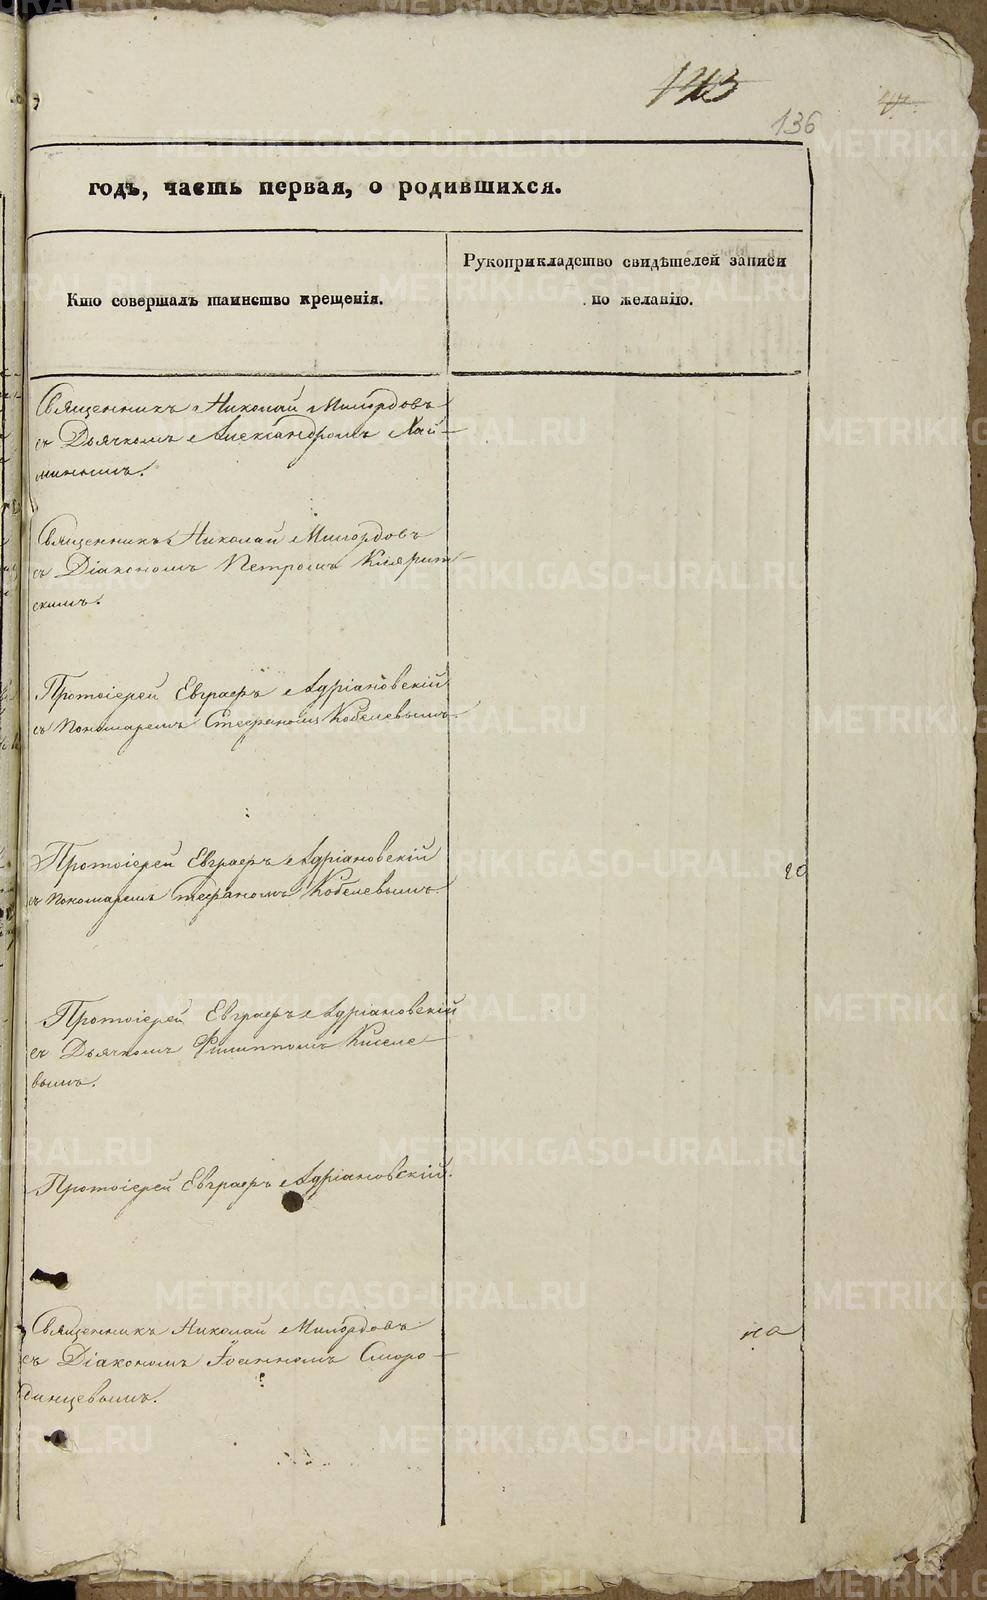 123
136
годъ, часть первая, о родившихся.
Кто совершалъ таинство крещенія.
Рукоприкладство свидѣтелей записи
по желанію.
Священникъ Николай Милордовъ
съ Дьячкомъ Александромъ Хай-
минымъ.
Священникъ Николай Милордовъ
съ Діакономъ Петромъ Клярит-
скимъ.
Протоіерей Евграфъ Адріановскій
съ Пономаремъ Стефаномъ Кобелевымъ.
Протоіерей Евграфъ Адріановскій
съ Пономаремъ Стефаномъ Кобелевымъ.
Протоіерей Евграфъ Адріановскій
съ Дьячкомъ Филиппомъ Киселе-
вымъ.
Протоіерей Евграфъ Адріановскій.
Священникъ Николай Милордовъ
съ Діакономъ Іоанномъ Сморо-
динцевымъ.
METRIKI.GASO-URAL.RU